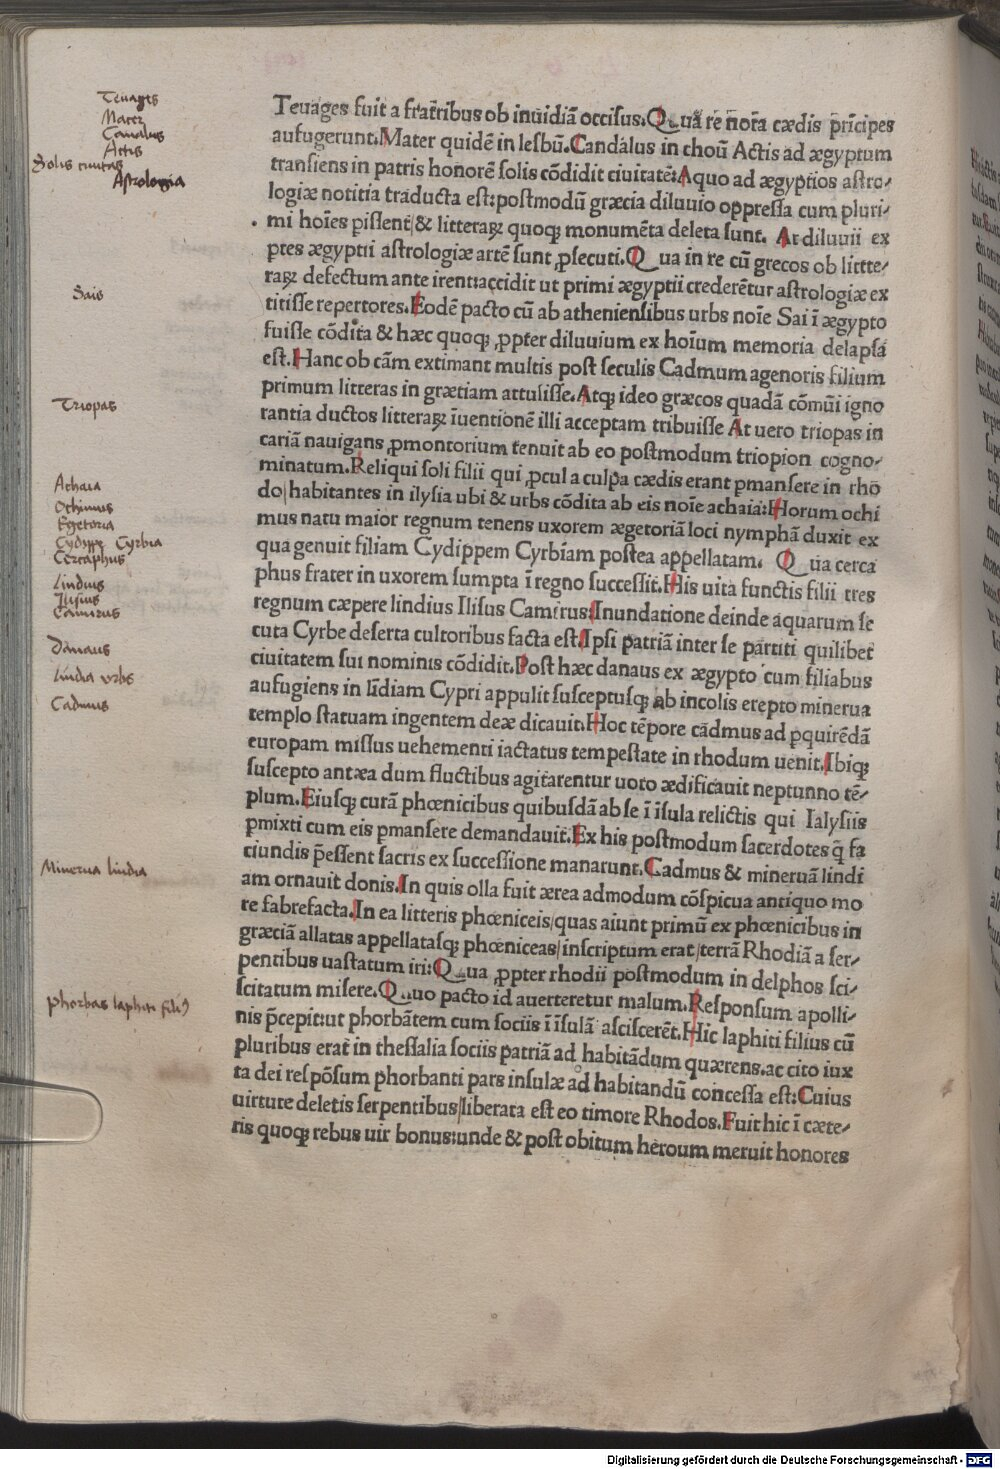 Teuages
Macer
Candalus
Actis
Solis ciuitas
Astrologia
Sais
Triopas
Achaia
Ochimus
Egetoria
Cydippe Cyrbia
Cercaphus
Lindius
Ilisius
Camirus
Danaus
Lindia urbs
Cadmus
Minerua lindia
phorbas laphiti filiꝰ
Teuages fuit a fratribus ob inuidiā occisus. Qua re nota cædis prīcipes
aufugerunt. Mater quidē in lesbū. Candalus in choū Actis ad ægyptum
transiens in patris honorē solis cōdidit ciuitatē: A quo ad ægyptios astro/
logiæ notitia traducta est: postmodū græcia diluuio oppressa cum pluri/
mi hoīes pissent/ & litteraꝝ quoqꝫ monumēta deleta sunt. At diluuii ex
ptes ægyptii astrologiæ artē sunt ꝓsecuti. Qua in re cū grecos ob littte/
raꝝ defectum ante irent: accidit ut primi ægyptii crederētur astrologiæ ex
titisse repertores. Eodē pacto cū ab atheniensibus urbs noīe Sai ī ægypto
fuisse cōdita & hæc quoqꝫ ꝓpter diluuium ex hoīum memoria delapsa
est. Hanc ob cām extimant multis post seculis Cadmum agenoris filium
primum litteras in grætiam attulisse. Atqꝫ ideo græcos quadā cōmūi igno
rantia ductos litteraꝝ īuentionē illi acceptam tribuisse At uero triopas in
cariā nauigans ꝓmontorium tenuit ab eo postmodum triopion cogno/
minatum. Reliqui soli filii qui ꝓcul a culpa cædis erant pmansere in rho
do/ habitantes in ilysia ubi & urbs cōdita ab eis noīe achaia: Horum ochi
mus natu maior regnum tenens uxorem ægetoriā loci nymphā duxit ex
qua genuit filiam Cydippem Cyrbiam postea appellatam. Qua cerca
phus frater in uxorem sumpta ī regno successit. His uita functis filii tres
regnum cæpere lindius Ilisus Camirus: Inundatione deinde aquarum se
cuta Cyrbe deserta cultoribus facta est. Ipsi patriā inter se partiti quilibet
ciuitatem sui nominis cōdidit. Post hæc danaus ex ægypto cum filiabus
aufugiens in līdiam Cypri appulit susceptusqꝫ ab incolis erepto minerua
templo statuam ingentem deæ dicauit. Hoc tēpore cadmus ad pquirēdā
europam missus uehementi iactatus tempestate in rhodum uenit. Ibiqꝫ
suscepto antæa dum fluctibus agitarentur uoto ædificauit neptunno tē/
plum. Eiusqꝫ curā phœnicibus quibusdā ab se ī īsula relictis qui Ialysiis
pmixti cum eis pmansere demandauit. Ex his postmodum sacerdotes q̄ fa
ciundis p̄essent sacris ex successione manarunt. Cadmus & mineruā lindi
am ornauit donis. In quis olla fuit ærea admodum cōspicua antiquo mo
re fabrefacta. In ea litteris phœniceis/ quas aiunt primū ex phœnicibus in
græciā allatas appellatasqꝫ phœniceas/ inscriptum erat/ terrā Rhodiā a ser/
pentibus uastatum iri: Qua ꝓpter rhodii postmodum in delphos sci/
scitatum misere. Quo pacto id auerteretur malum. Responsum apolli/
nis p̄cepit: ut phorbātem cum sociis ī īsulā asciscerēt. Hic laphiti filius cū
pluribus erat in thessalia sociis patriā ad habitādum quærens. ac cito iux
ta dei respōsum phorbanti pars insulæ ad habitandū concessa est: Cuius
uirtute deletis serpentibus/ liberata est eo timore Rhodos. Fuit hic ī cæte/
ris quoqꝫ rebus uir bonus: unde & post obitum heroum meruit honores
Digitalisierung gefördert durch die Deutsche Forschungsgemeinschaft - DFG